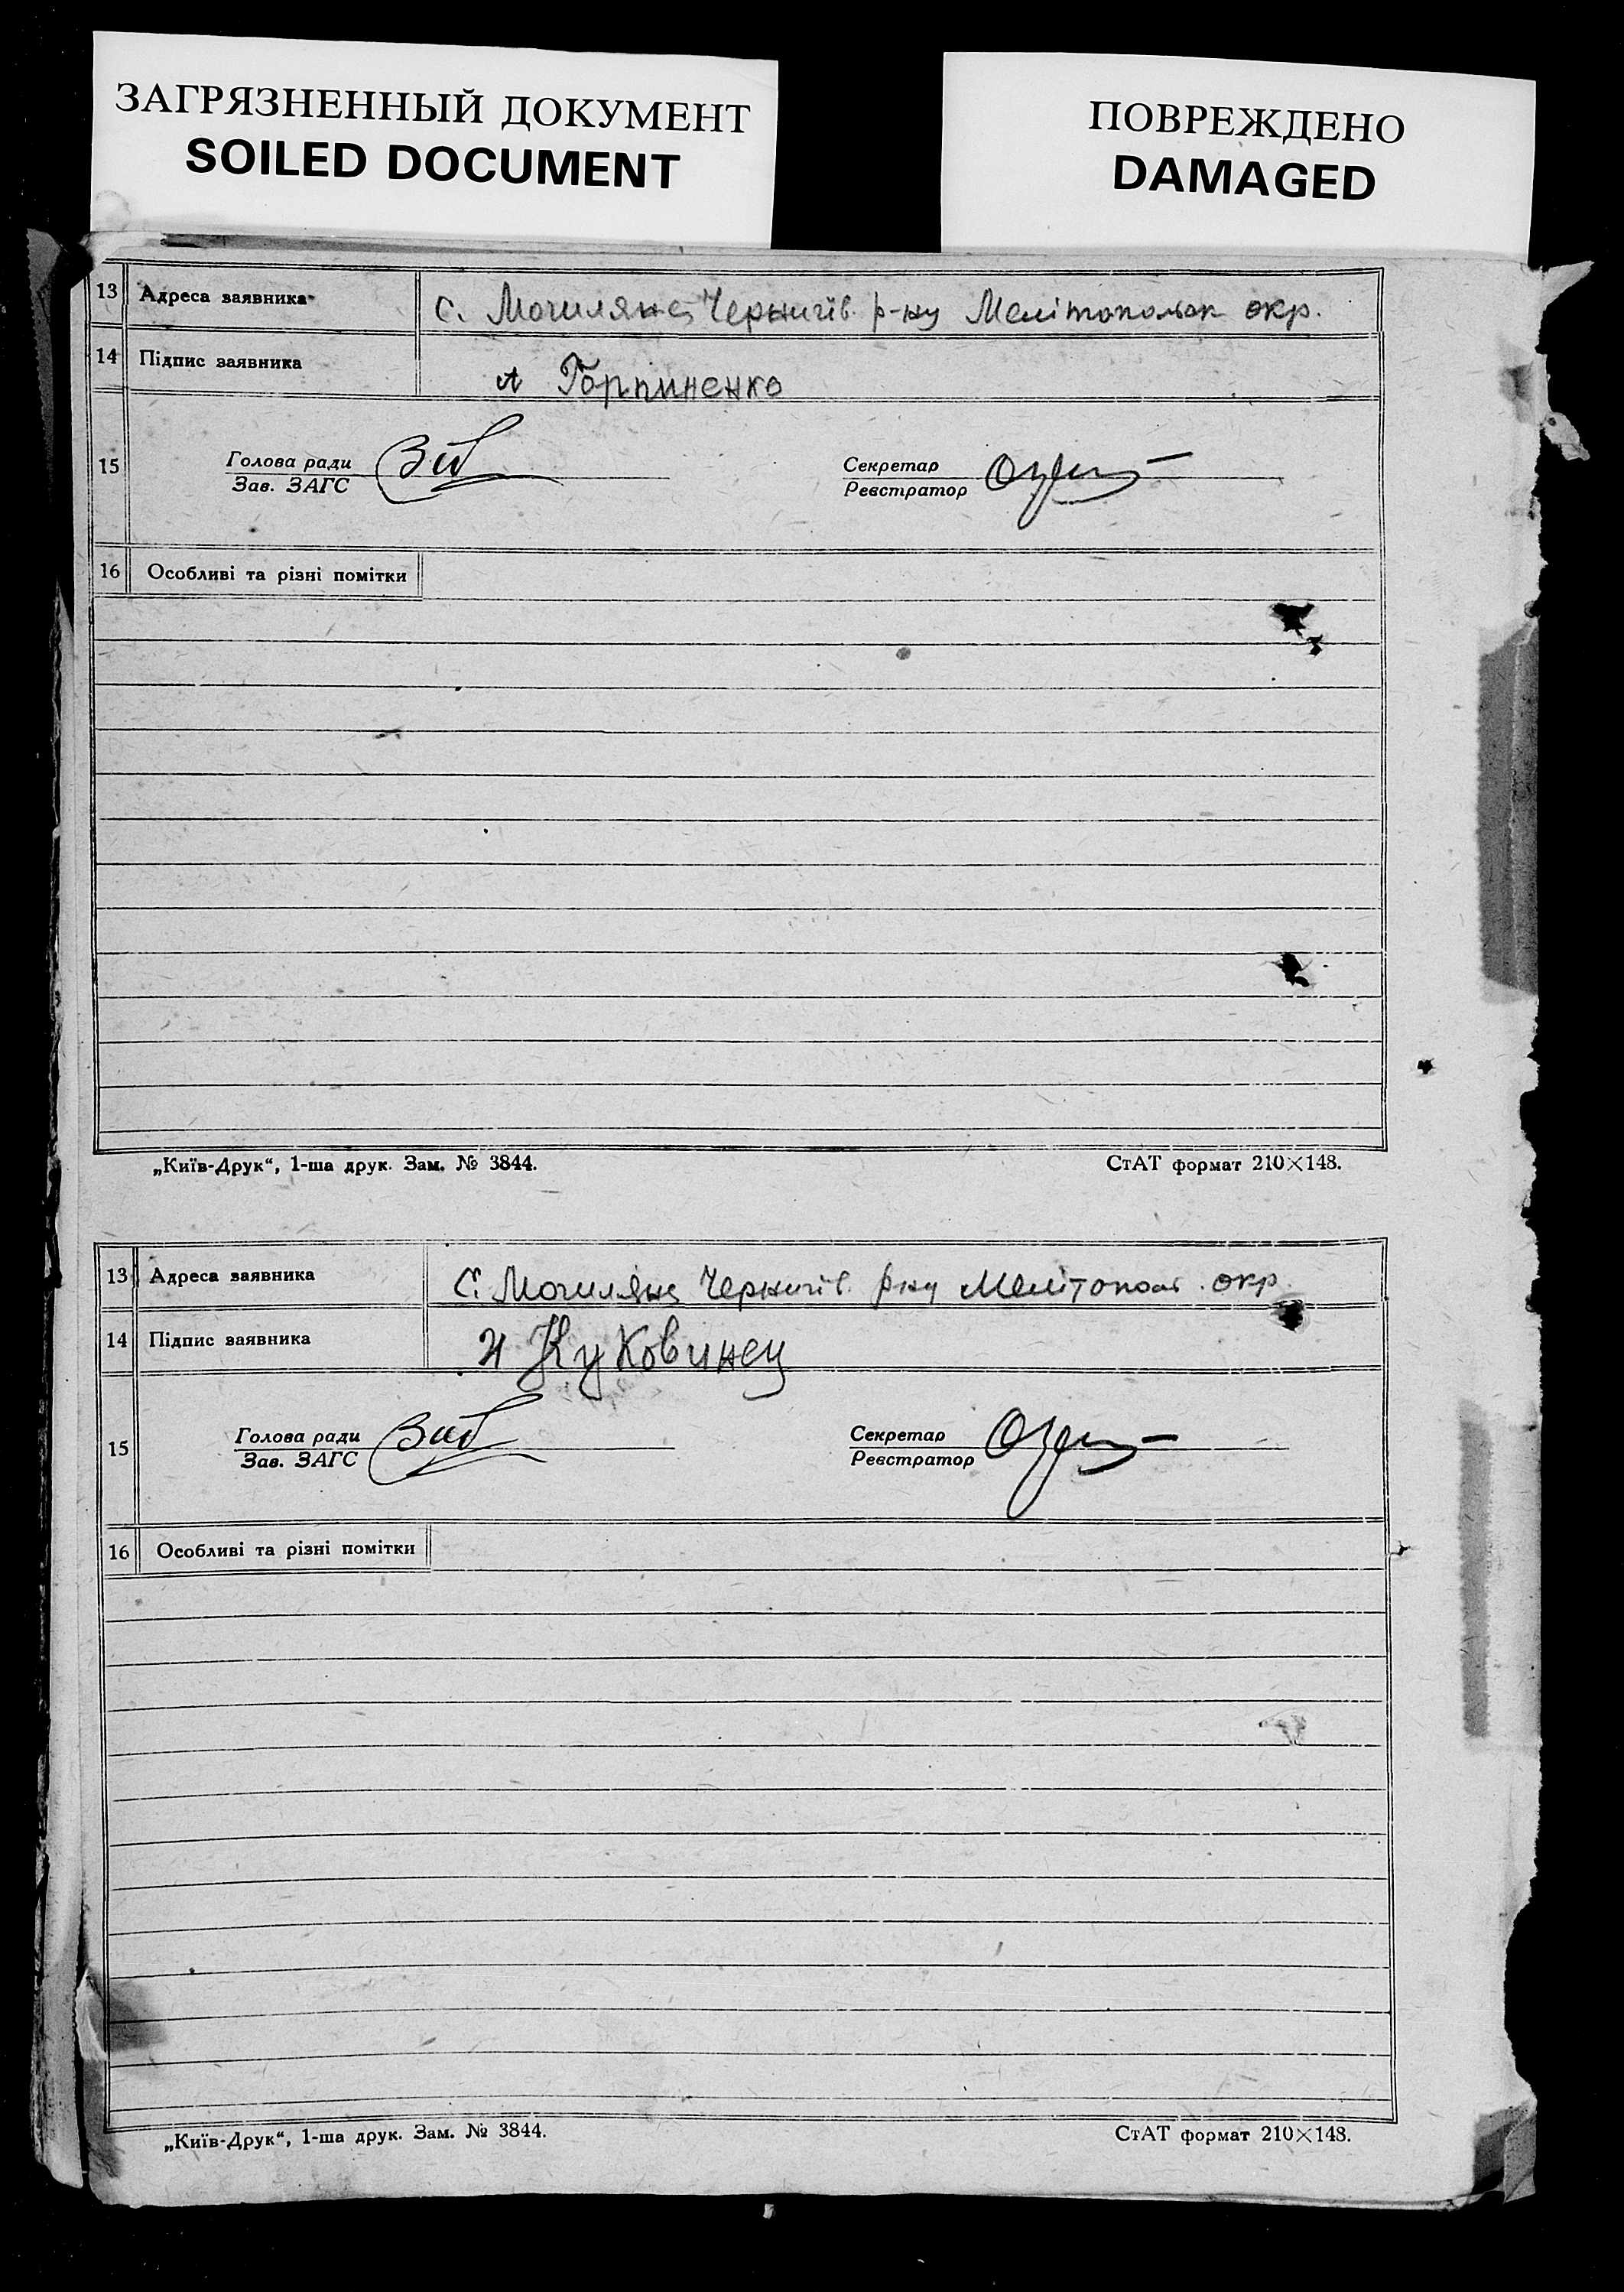 ЗАГРЯЗНЕННЫЙ ДОКУМЕНТ
SOILED DOCUMENT
ПОВРЕЖДЕНО
DAMAGED
13 Адреса заявника с. Могиляни Чернигів. р-ну Мелітопольск окр.
14 Підпис заявника А Горпиненко
15 Голова ради Секретар
Зав. ЗАГС Реєстратор
16 Особливі та різні помітки
„Київ-Друк“, 1-ша друк. Зам. № 3844. СтАТ формат 210×148.
13 Адреса заявника С. Могиляни Чернигів. р-ну Мелітопол. окр.
14 Підпис заявника И Куковинец
15 Голова ради Секретар
Зав. ЗАГС Реєстратор
16 Особливі та різні помітки
„Київ-Друк“, 1-ша друк. Зам. № 3844. СтАТ формат 210×148.